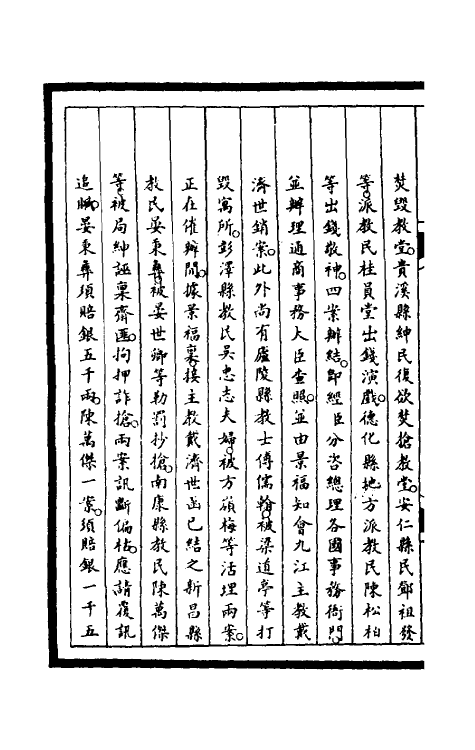 焚毀教堂。貴溪縣紳民復欲焚搶教堂。安仁縣民鄧祖發
等。派教民桂員堂出錢演戲。德化縣地方派教民陳松柏
等出錢敬神。四案辦結。即經臣分咨總理各國事務衙門。
並辦理通商事務大臣查照。並由景福知會九江主教戴
濟世銷案。此外尚有廬陵縣教士傅儒翰。被梁道亭等打
毀寓所。彭澤縣教民吳忠志夫婦。被方嶺梅等活埋兩案。
正在催辦間。據景福稟。接主教戴濟世函。已結之新昌縣
教民晏秉彝。被晏世卿等勒罰抄搶。南康縣教民陳萬傑
等。被局紳誣稟齋匪。拘押詐搶。兩案訊斷偏枯。應請覆訊
追贓。晏秉彝須賠銀五千兩。陳萬傑一案。須賠銀一千五